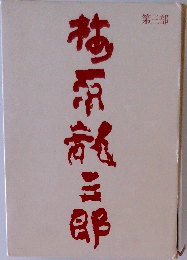 第三部
梅原龍三郎